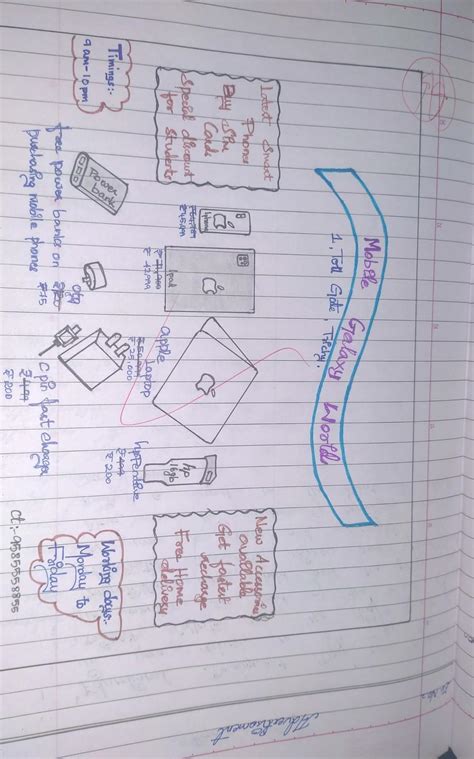 Advertisement
Mobile Galaxy World
1, Toll Gate, Trichy.
Latest Smart
Phones
Buy Sim
Cards
Special discount
for students
New Accessories
available
Get fastest
recharge
Free Home
delivery
Ipad
₹ 42,999
Apple
Laptop
₹ 25,000
hp
16gb
hp Pendrive
₹ 200
Timings:-
9 am-10pm
Power
bank
free power banks on
purchasing mobile phones
Otg
₹15
C pin fast charger
₹ 200
Working days:-
Monday to
Friday
ct:-9585558856